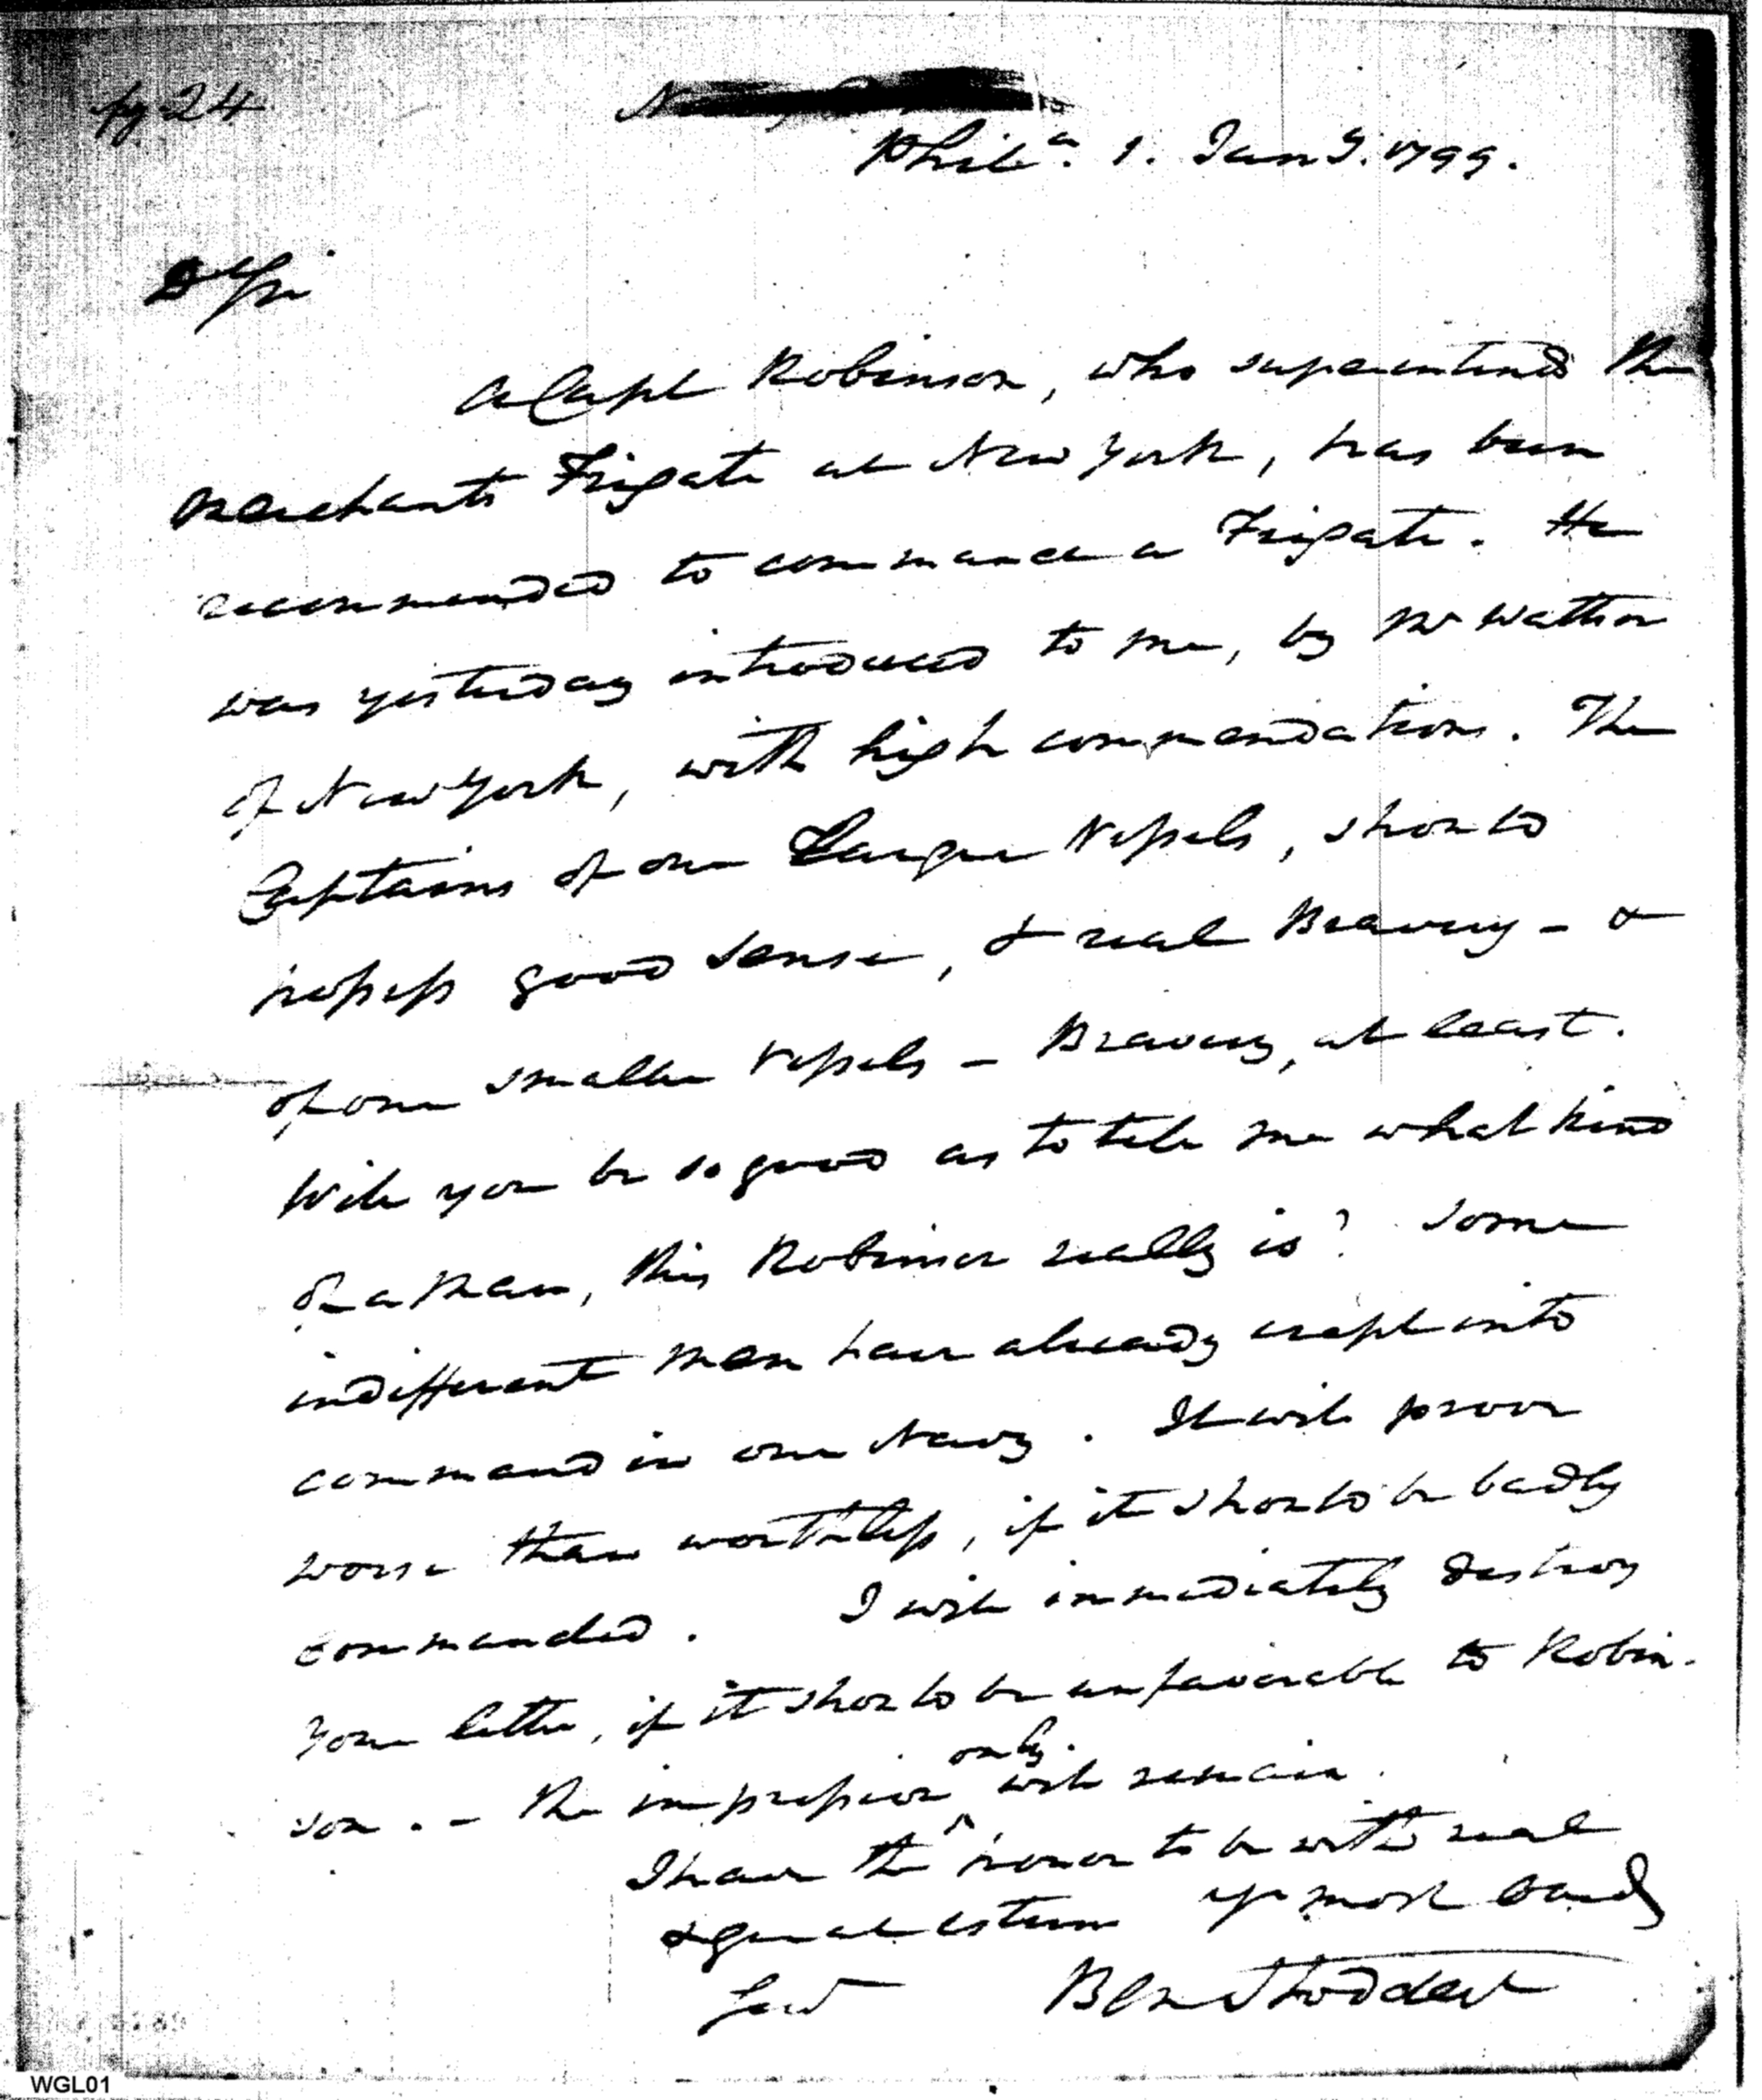 pg 24
Philᵃ. 1. Jany. 1799.
D Sir
A Capt Robinson, who superintends the
Merchants Frigate at New York, has been
recommended to command a Frigate. He
was yesterday introduced to me, by Mr Watson
of New York, with high commendations. The
Captains of our Larger Vessels, should
possess good sense, & real Bravery - &
of our smaller Vessels - Bravery, at least.
Will you be so good as to tell me what kind
of a Man, this Robinson really is? Some
indifferent men have already crept into
command in our Navy. It will prove
worse than worthless, if it should be badly
commanded. I will immediately destroy
Your letter, if it should be unfavorable to Robin-
son. - The impression only will remain.
I have the honor to be with real
& great esteem yr most obed
Serv Ben Stoddert
WGL01